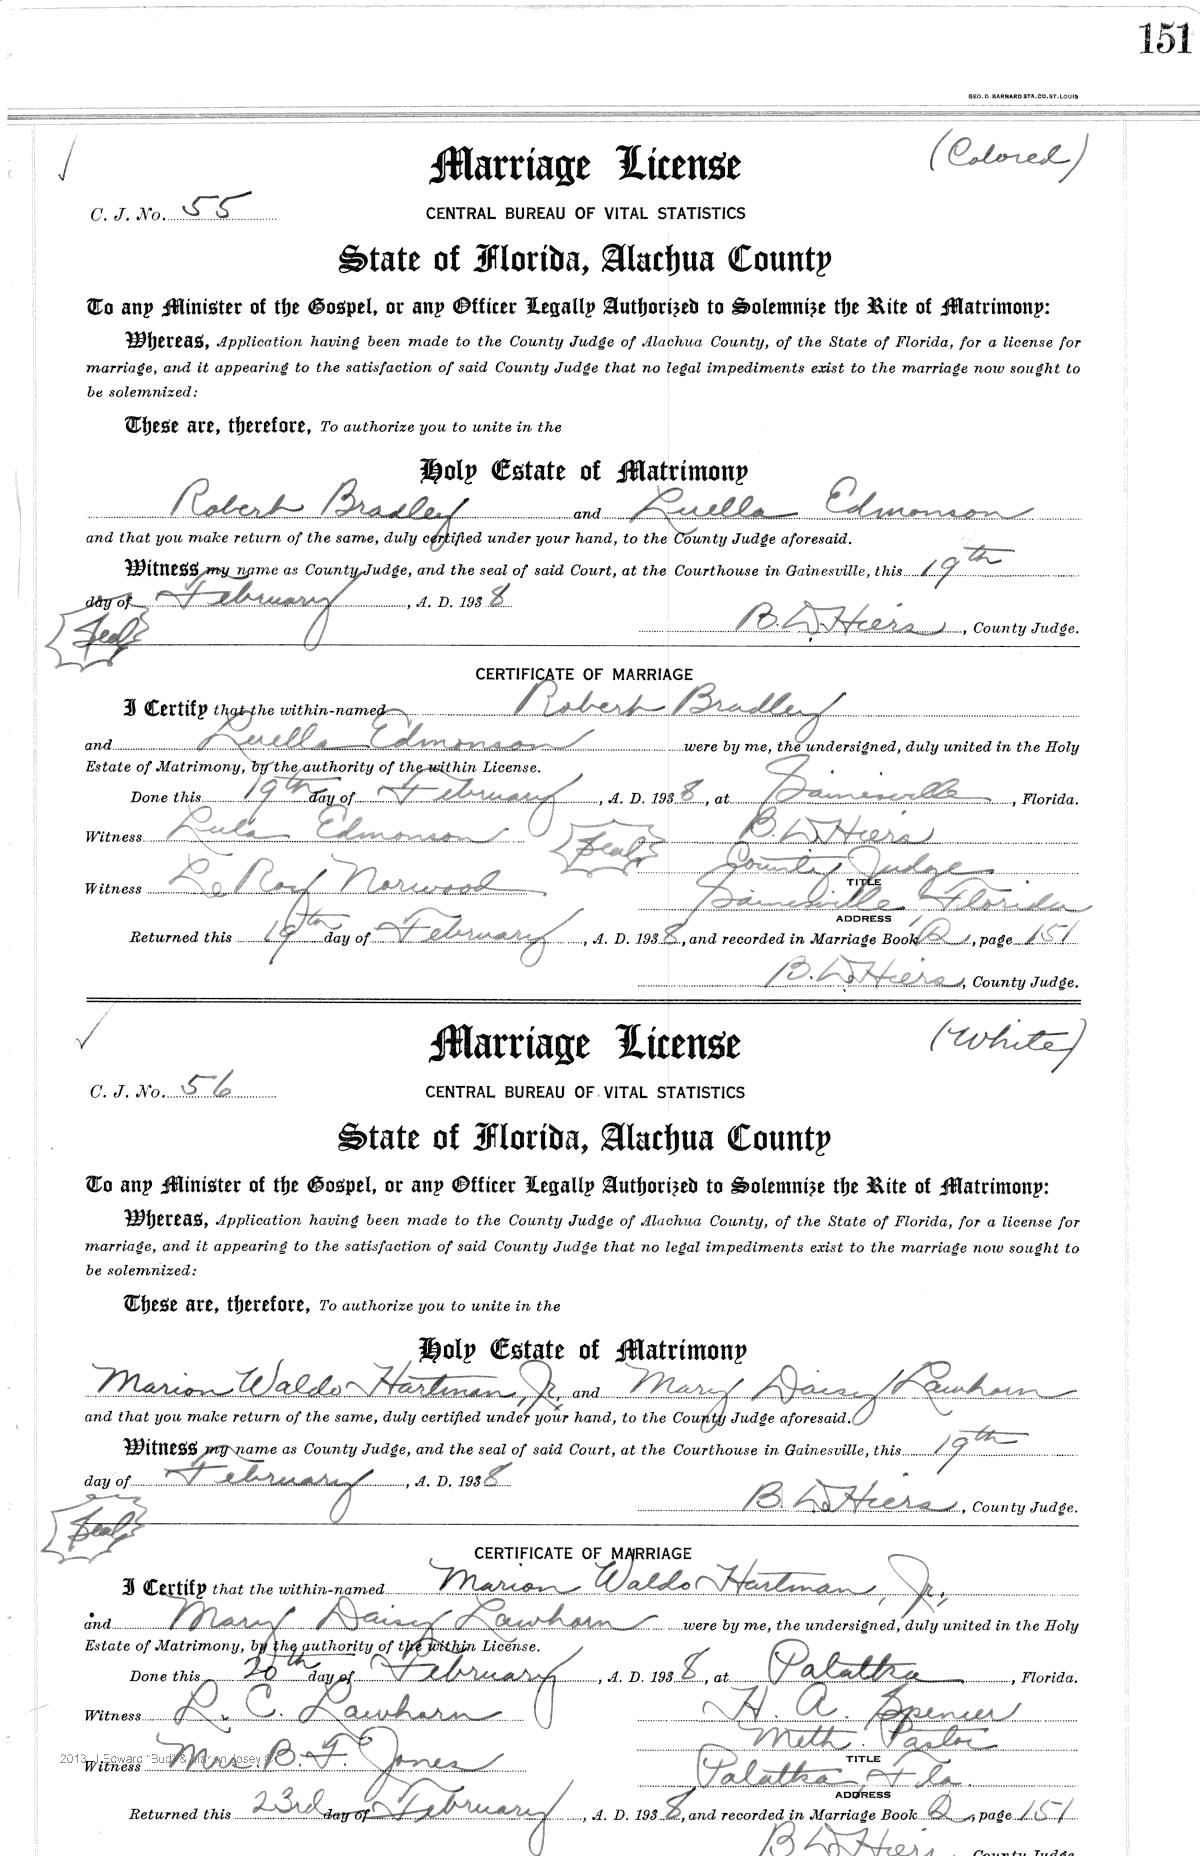 151
GEO. D. BARNARD STA. CO. ST. LOUIS
(Colored)
Marriage License
C. J. No. 55
CENTRAL BUREAU OF VITAL STATISTICS
State of Florida, Alachua County
To any Minister of the Gospel, or any Officer Legally Authorized to Solemnize the Rite of Matrimony:
Whereas, Application having been made to the County Judge of Alachua County, of the State of Florida, for a license for
marriage, and it appearing to the satisfaction of said County Judge that no legal impediments exist to the marriage now sought to
be solemnized:
These are, therefore, To authorize you to unite in the
Holy Estate of Matrimony
Robert Bradley and Luella Edmonson
and that you make return of the same, duly certified under your hand, to the County Judge aforesaid.
Witness my name as County Judge, and the seal of said Court, at the Courthouse in Gainesville, this 19th
day of February, A. D. 1938
Seal
B. D. Hiers, County Judge.
CERTIFICATE OF MARRIAGE
I Certify that the within-named Robert Bradley
and Luella Edmonson were by me, the undersigned, duly united in the Holy
Estate of Matrimony, by the authority of the within License.
Done this 19th day of February, A. D. 1938, at Gainesville, Florida.
Witness Lula Edmonson Seal B. D. Hiers
County Judge
Witness Le Roy Norwood TITLE
Gainesville, Florida
ADDRESS
Returned this 19th day of February, A. D. 1938, and recorded in Marriage Book Q, page 151
B. D. Hiers, County Judge.
(White)
Marriage License
C. J. No. 56
CENTRAL BUREAU OF VITAL STATISTICS
State of Florida, Alachua County
To any Minister of the Gospel, or any Officer Legally Authorized to Solemnize the Rite of Matrimony:
Whereas, Application having been made to the County Judge of Alachua County, of the State of Florida, for a license for
marriage, and it appearing to the satisfaction of said County Judge that no legal impediments exist to the marriage now sought to
be solemnized:
These are, therefore, To authorize you to unite in the
Holy Estate of Matrimony
Marion Waldo Hartman, Jr. and Mary Daisy Lawhorn
and that you make return of the same, duly certified under your hand, to the County Judge aforesaid.
Witness my name as County Judge, and the seal of said Court, at the Courthouse in Gainesville, this 19th
day of February, A. D. 1938
B. D. Hiers, County Judge.
Seal
CERTIFICATE OF MARRIAGE
I Certify that the within-named Marion Waldo Hartman, Jr.
and Mary Daisy Lawhorn were by me, the undersigned, duly united in the Holy
Estate of Matrimony, by the authority of the within License.
Done this 20th day of February, A. D. 1938, at Palatka, Florida.
Witness L. C. Lawhorn H. A. Spencer
Meth. Pastor
2013 J Edward "Bud"
Witness Mrs. B. F. Jones TITLE
Palatka, Fla.
ADDRESS
Returned this 23rd day of February, A. D. 1938, and recorded in Marriage Book Q, page 151
B. D. Hiers, County Judge.